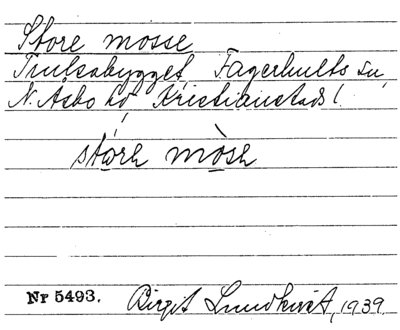 Store mosse
Trulsabygget, Fagerhults sn,
N. Åsbo hd Kristianstads l.
Nr 5493. Birgit Lundkvist, 1939.